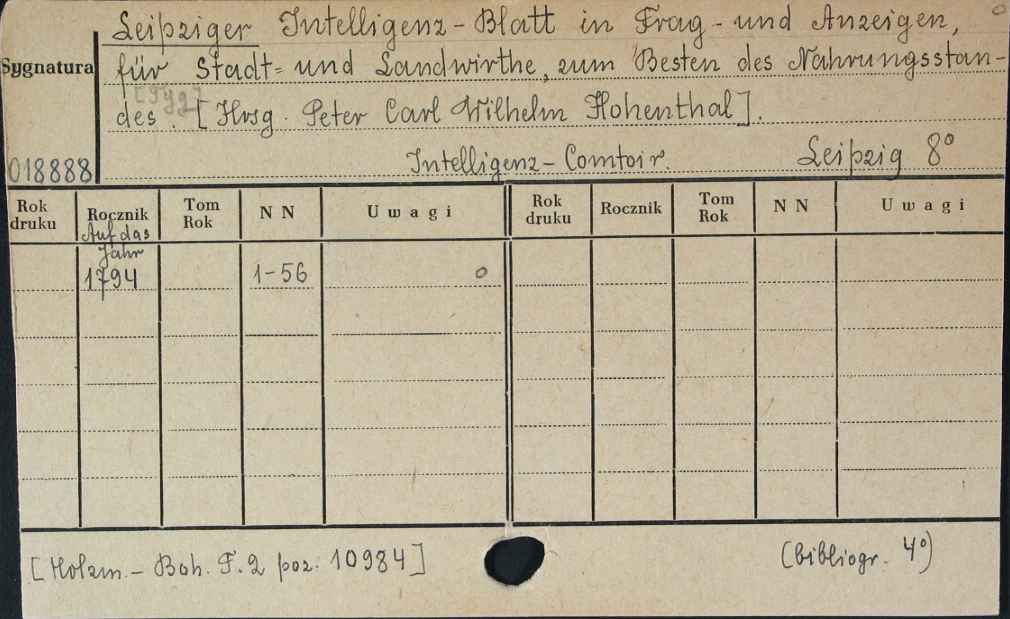 Leipziger Intelligenz-Blatt in Frag- und Anzeigen,
Sygnatura
für Stadt= und Landwirthe, zum Besten des Nahrungsstan-
des. [Hrsg. Peter Carl Wilhelm Hohenthal].
018888
Intelligenz-Comtoir. Leipzig 8°
Rok druku Rocznik Tom Rok NN Uwagi Rok druku Rocznik Tom Rok NN Uwagi
Auf das
Jahr
1794 1-56 o
[Holzm.- Boh. F. 2 poz. 10984] (bibliogr. 4°)